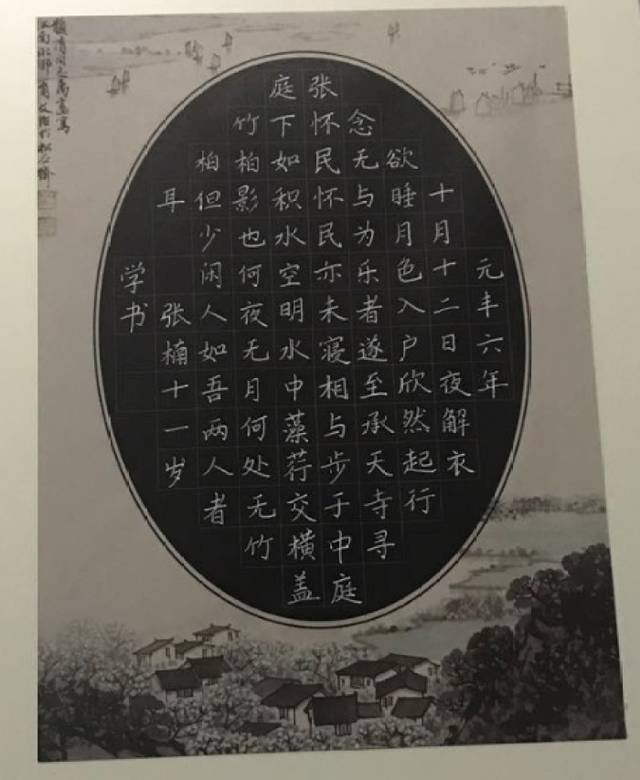 元丰六年
十月十二日夜解衣
欲睡月色入户欣然起行
念无与为乐者遂至承天寺寻
张怀民怀民亦未寝相与步于中庭
庭下如积水空明水中藻荇交横盖
竹柏影也何夜无月何处无竹
柏但少闲人如吾两人者
耳 张楠十一岁
学书